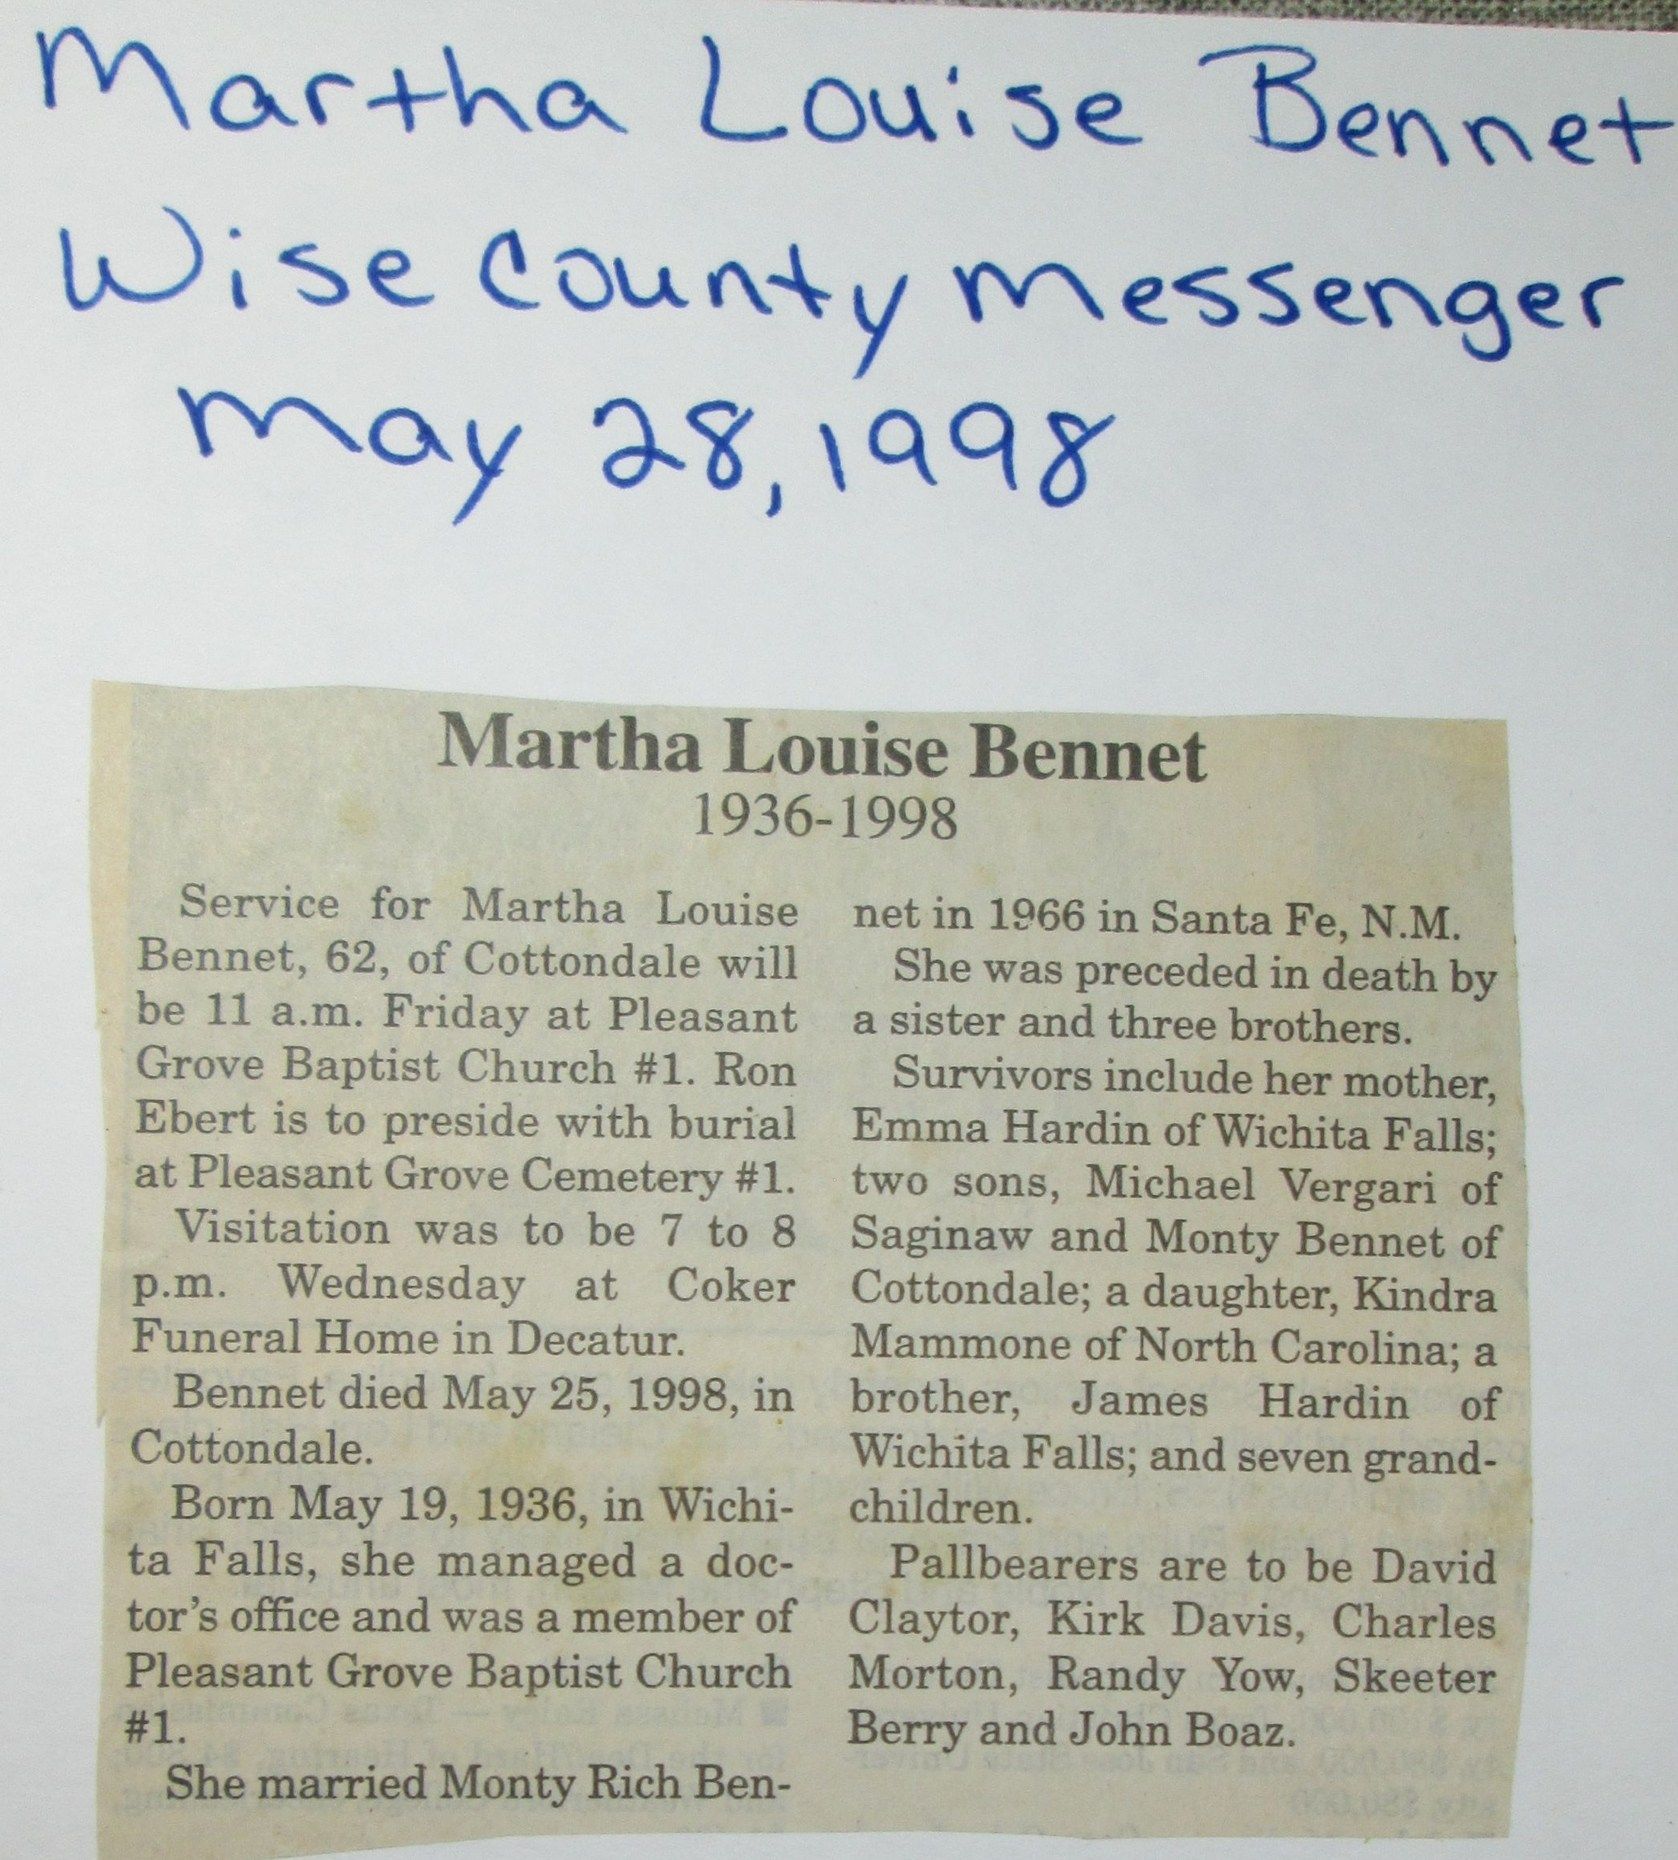 Martha Louise Bennet
Wise County Messenger
May 28, 1998
Martha Louise Bennet
1936-1998
Service for Martha Louise
Bennet, 62, of Cottondale will
be 11 a.m. Friday at Pleasant
Grove Baptist Church #1. Ron
Ebert is to preside with burial
at Pleasant Grove Cemetery #1.
Visitation was to be 7 to 8
p.m. Wednesday at Coker
Funeral Home in Decatur.
Bennet died May 25, 1998, in
Cottondale.
Born May 19, 1936, in Wichi-
ta Falls, she managed a doc-
tor's office and was a member of
Pleasant Grove Baptist Church
#1.
She married Monty Rich Ben-
net in 1966 in Santa Fe, N.M.
She was preceded in death by
a sister and three brothers.
Survivors include her mother,
Emma Hardin of Wichita Falls;
two sons, Michael Vergari of
Saginaw and Monty Bennet of
Cottondale; a daughter, Kindra
Mammone of North Carolina; a
brother, James Hardin of
Wichita Falls; and seven grand-
children.
Pallbearers are to be David
Claytor, Kirk Davis, Charles
Morton, Randy Yow, Skeeter
Berry and John Boaz.